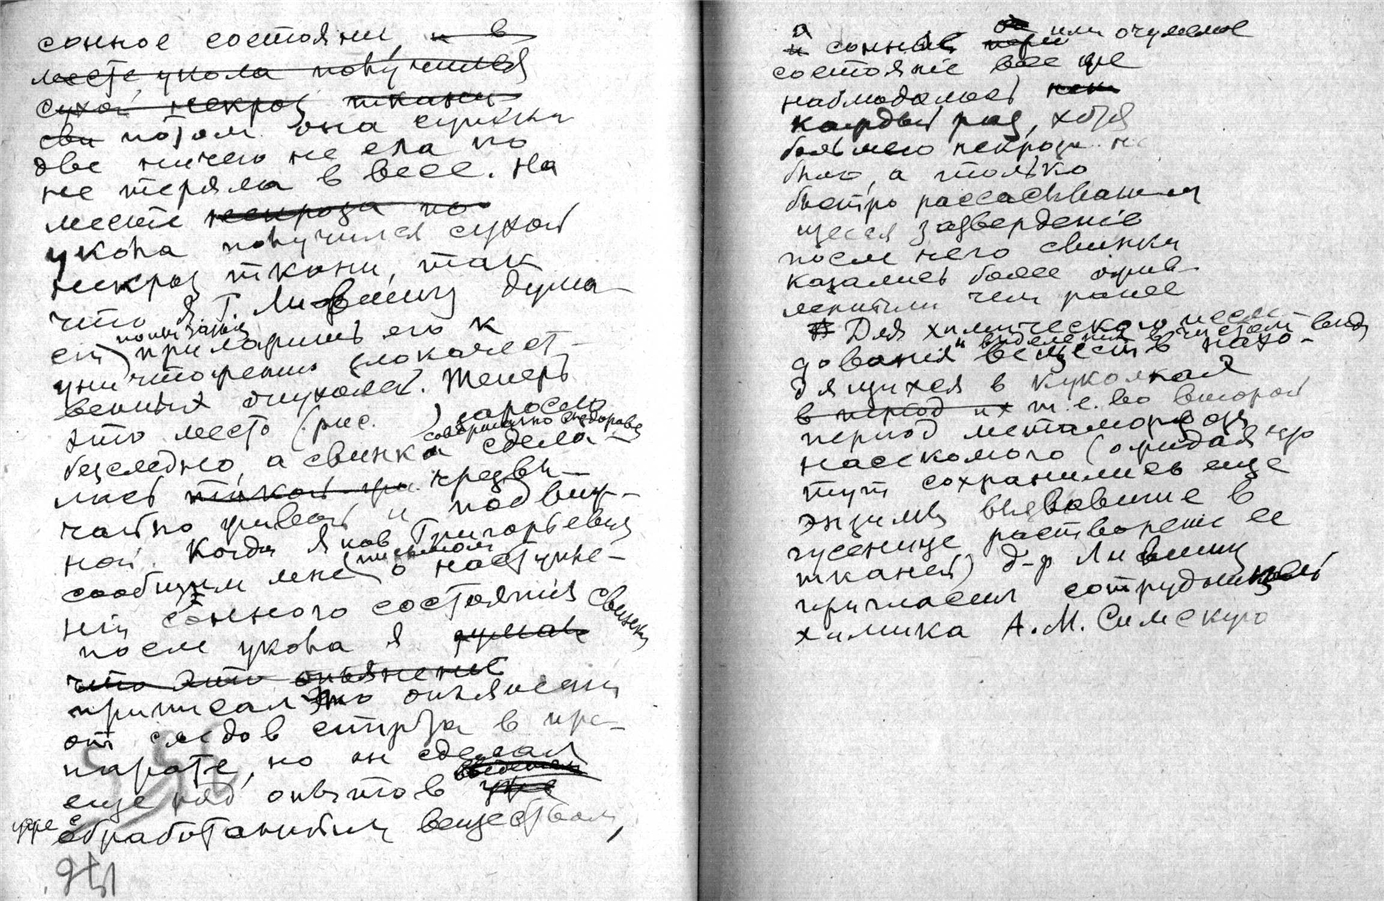 сонное состояни, и в
месте укола получился
сухой некроз ткани
сви потом она сутки
две ничего не ела но
не теряла в весе. На
месте некроза по
укола получился сухой
некроз ткани, так
что Я. Г. Лившиц дума-
ет попытаться применить его к
уничтожению злокачест-
венных опухолей. Теперь
это место (рис. ) заросло
бесследно, а свинка совершенно здорова сдела-
лась такой чрезвы-
чайно живой и подвиж-
ной. Когда Яков Григорьевич
сообщил мне (письмом) о наступле-
нии сонного состоянiя свинки
после укола я думал
что это опьянение
приписал это опьянению
от следов спирта в пре-
парате, но он сделал
еще ряд опытов
уже с обработанным веществом,
и сонный или очумелое
состоянiе все же
наблюдалось
каждый раз, хотя
большого некроза не
было, а только
быстро рассасывающ
щееся затверденiе
после чего свинки
казались более ожив-
ленными чем ранее
Для химического иссле-
дования и выделения в чистом виде веществ нахо-
дящихся в куколках
в период их т. е. во второй
период метаморфоз
насекомого (ожидая что
тут сохранились еще
энзимы вызвавшие в
гусенице растворенiе ее
тканей) д-р Лившиц
пригласил сотрудницей
химика А. М. Симскую